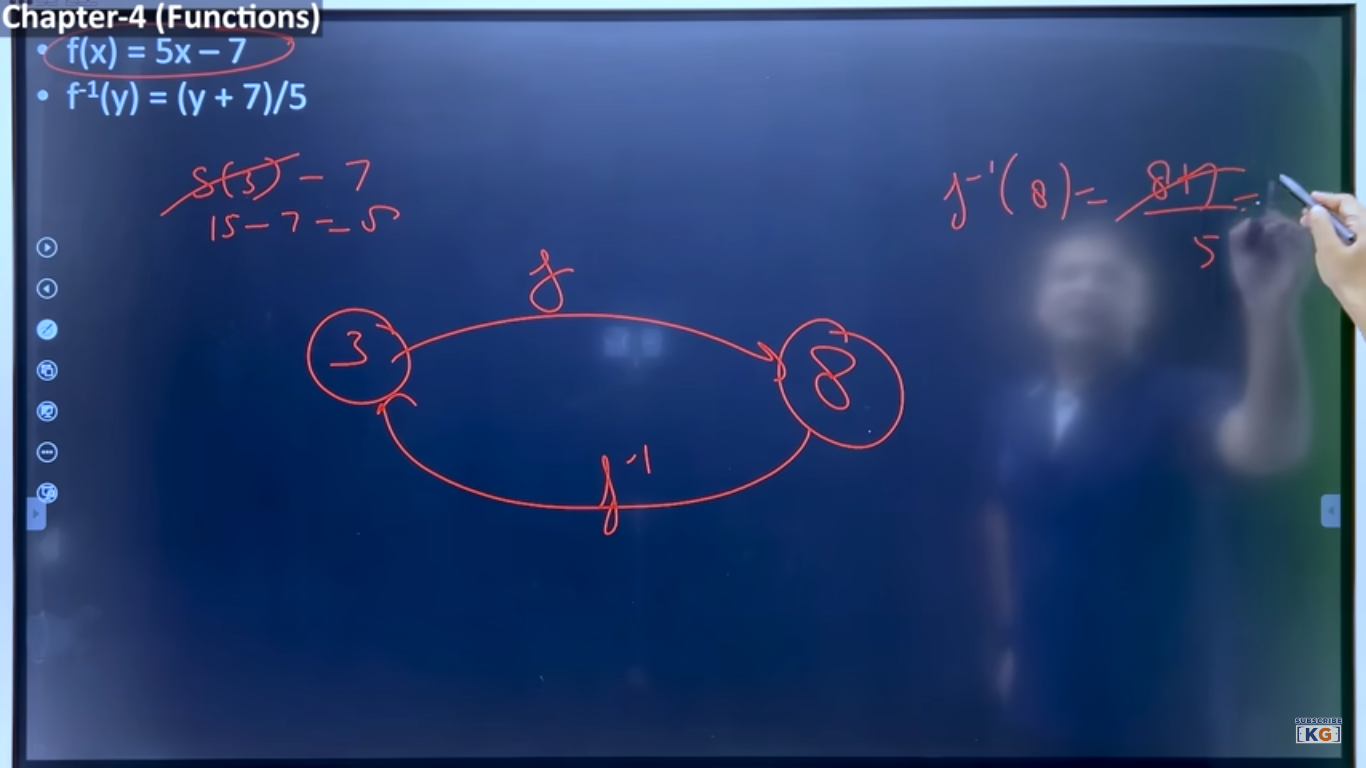 Chapter-4 (Functions)
• f(x) = 5x – 7
• f⁻¹(y) = (y + 7)/5
5(3) – 7
15 – 7 = 5
f⁻¹(8) = 8+7 =
5
f
3
8
f⁻¹
SUBSCRIBE
[KG]